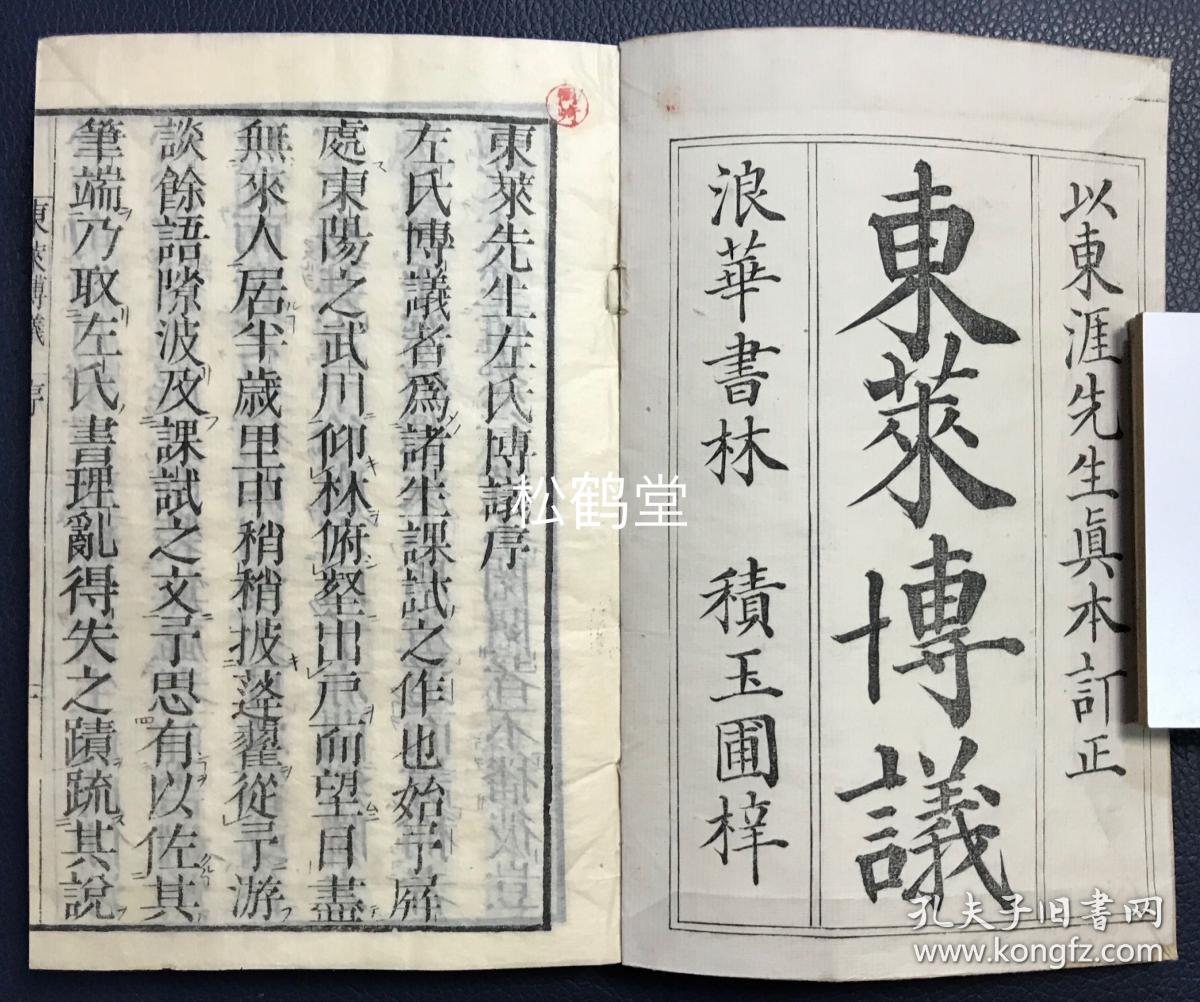 以東涯先生眞本訂正
東萊博議
浪華書林 積玉圃梓
東萊先生左氏博議序
左氏博議者爲諸生課試之作也始予屏
處東陽之武川仰林俯壑出戶而望目盡
無來人居半歲里中稍稍披蓬藋從予游
談餘語隙波及課試之文予思有以佐其
筆端乃取左氏書理亂得失之蹟疏其說
東萊博議 序 一
松鹤堂
孔夫子旧书网
www.kongfz.com